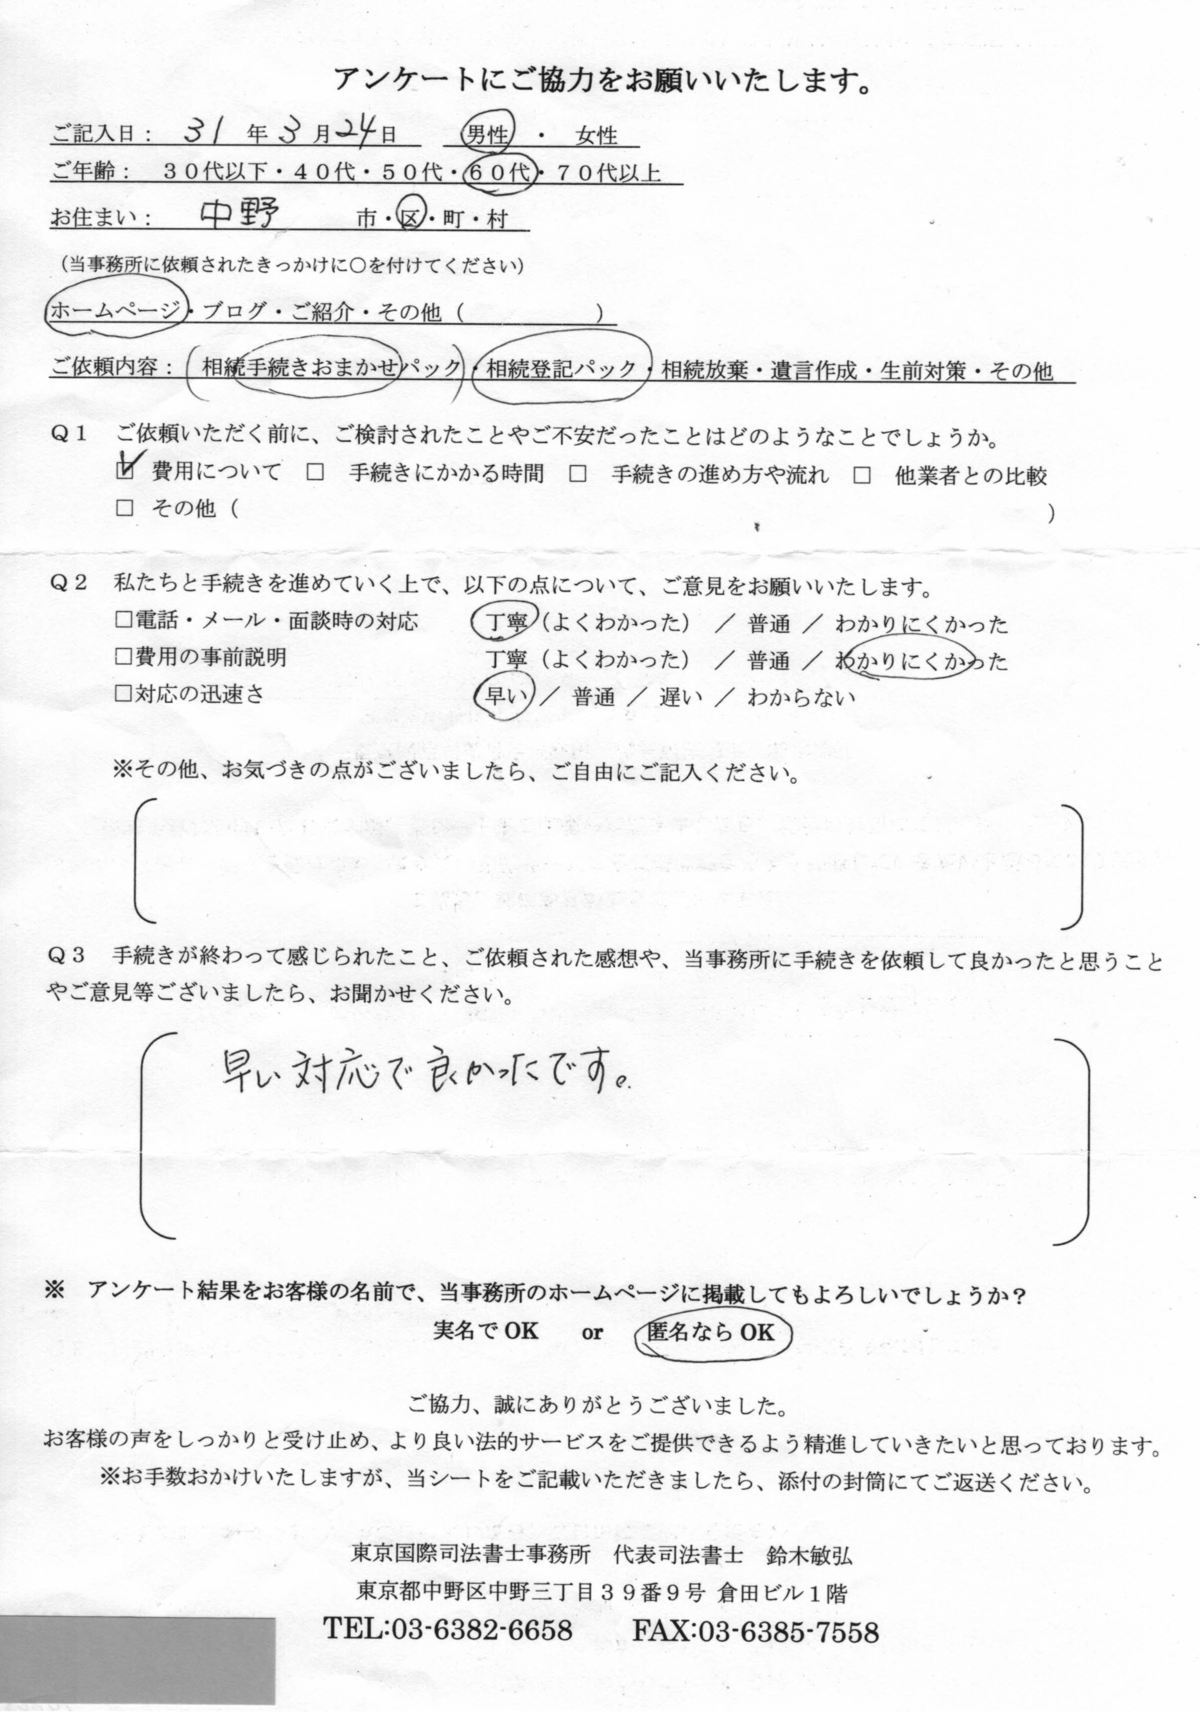 アンケートにご協力をお願いいたします。
ご記入日： 31 年 3 月 24 日　男性 ・ 女性
ご年齢：　３０代以下・４０代・５０代・６０代・７０代以上
お住まい：　中野　市・区・町・村
（当事務所に依頼されたきっかけに○を付けてください）
ホームページ・ブログ・ご紹介・その他（　　　　　　）
ご依頼内容：（相続手続きおまかせパック）・相続登記パック・相続放棄・遺言作成・生前対策・その他
Ｑ１　ご依頼いただく前に、ご検討されたことやご不安だったことはどのようなことでしょうか。
☑ 費用について □ 手続きにかかる時間 □ 手続きの進め方や流れ □ 他業者との比較
□ その他（　　　　　　）
Ｑ２　私たちと手続きを進めていく上で、以下の点について、ご意見をお願いいたします。
□電話・メール・面談時の対応　丁寧（よくわかった） ／ 普通 ／ わかりにくかった
□費用の事前説明　丁寧（よくわかった） ／ 普通 ／ わかりにくかった
□対応の迅速さ　早い ／ 普通 ／ 遅い ／ わからない
※その他、お気づきの点がございましたら、ご自由にご記入ください。
Ｑ３　手続きが終わって感じられたこと、ご依頼された感想や、当事務所に手続きを依頼して良かったと思うこと
やご意見等ございましたら、お聞かせください。
早い対応で良かったです。
※　アンケート結果をお客様の名前で、当事務所のホームページに掲載してもよろしいでしょうか？
実名で OK　or　匿名なら OK
ご協力、誠にありがとうございました。
お客様の声をしっかりと受け止め、より良い法的サービスをご提供できるよう精進していきたいと思っております。
※お手数おかけいたしますが、当シートをご記載いただきましたら、添付の封筒にてご返送ください。
東京国際司法書士事務所　代表司法書士　鈴木敏弘
東京都中野区中野三丁目３９番９号 倉田ビル１階
TEL:03-6382-6658　FAX:03-6385-7558